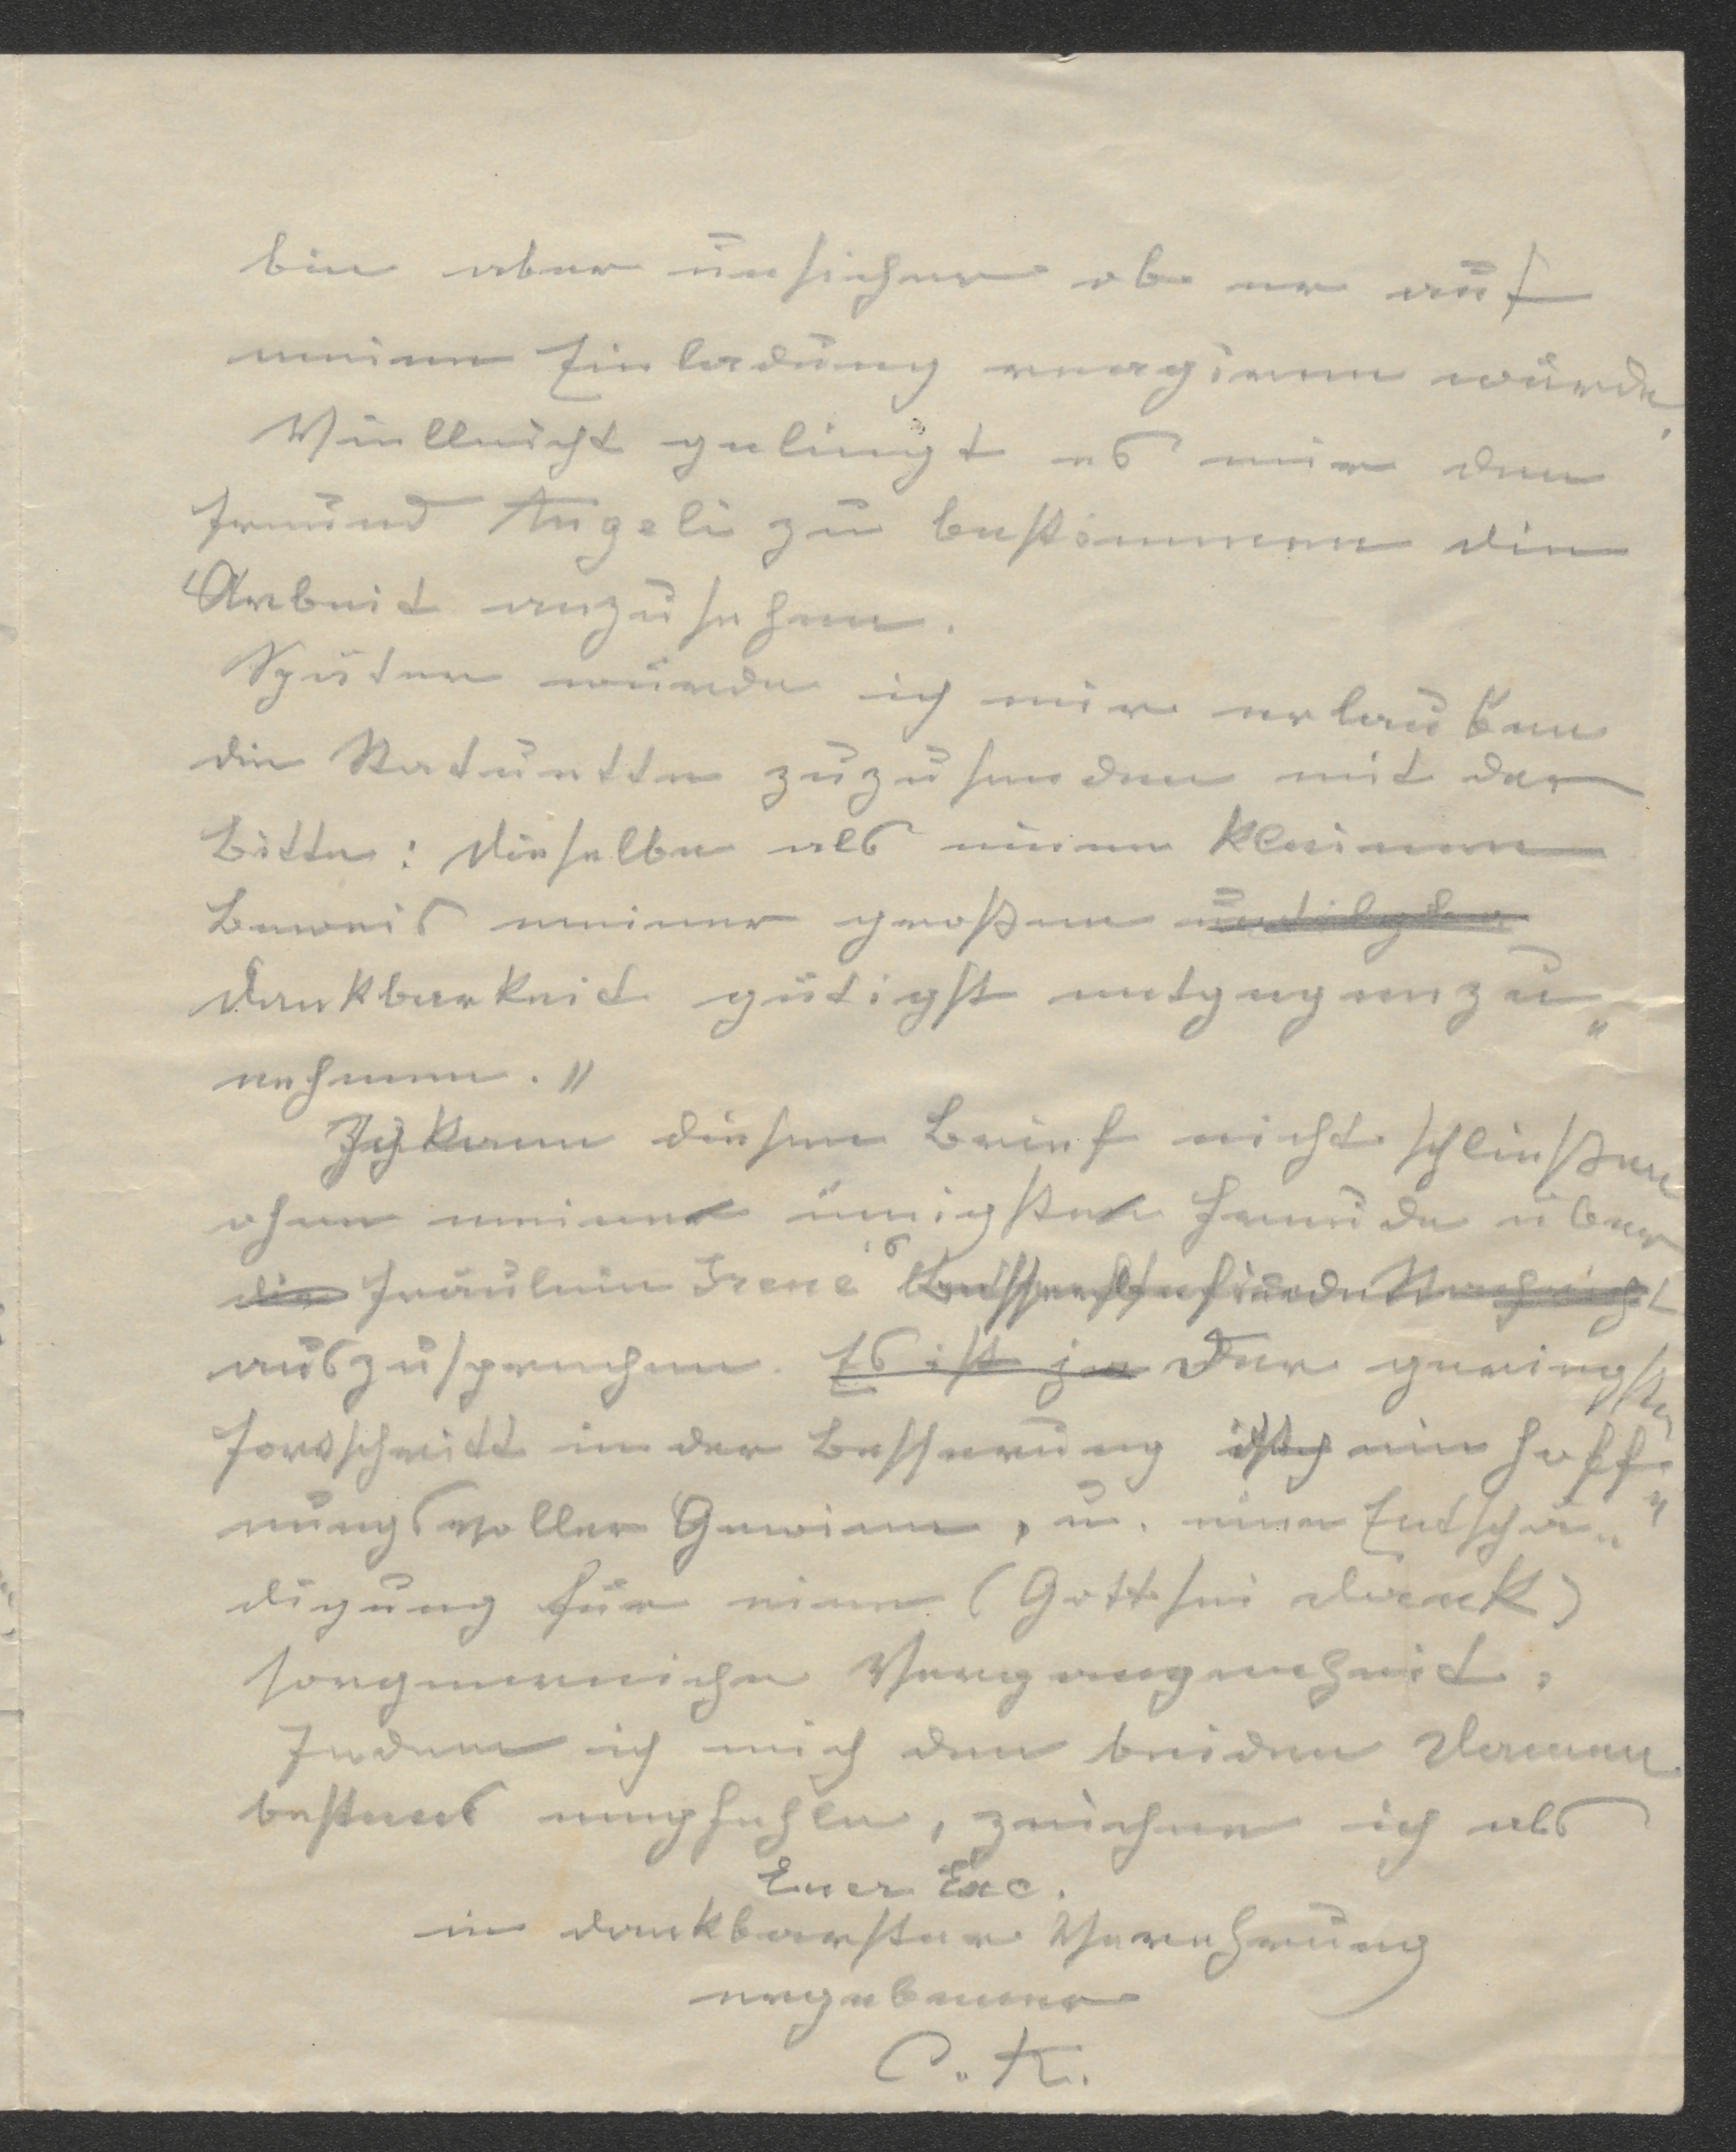 bin aber unsicher ob er auf
meine Einladung reagieren würde.
Vielleicht gelingt es mir den
Freund Angeli zu bestimmen die
Arbeit anzusehen.
Später würde ich mir erlauben
die Statuette zuzusenden mit der
Bitte: dieselbe als einen kleinen
Beweis meiner großen
Dankbarkeit gütigst entgegenzu„
nehmen."
Ich kann diesen Brief nicht schließen
ohne meine innigste Freude über
die Fräulein Irene's
auszusprechen. Es ist ja Der geringste
Fortschritt in der Besserung ist ein hoff„
nungsvoller Gewinn, u. eine Entschä„
digung für eine (Gott sei Dank)
sorgenreiche Vergangenheit.
Indem ich mich den beiden Damen
bestens empfehle, zeichne ich als
Euer Exc.
in dankbarster Verehrung
ergebener
C. K.